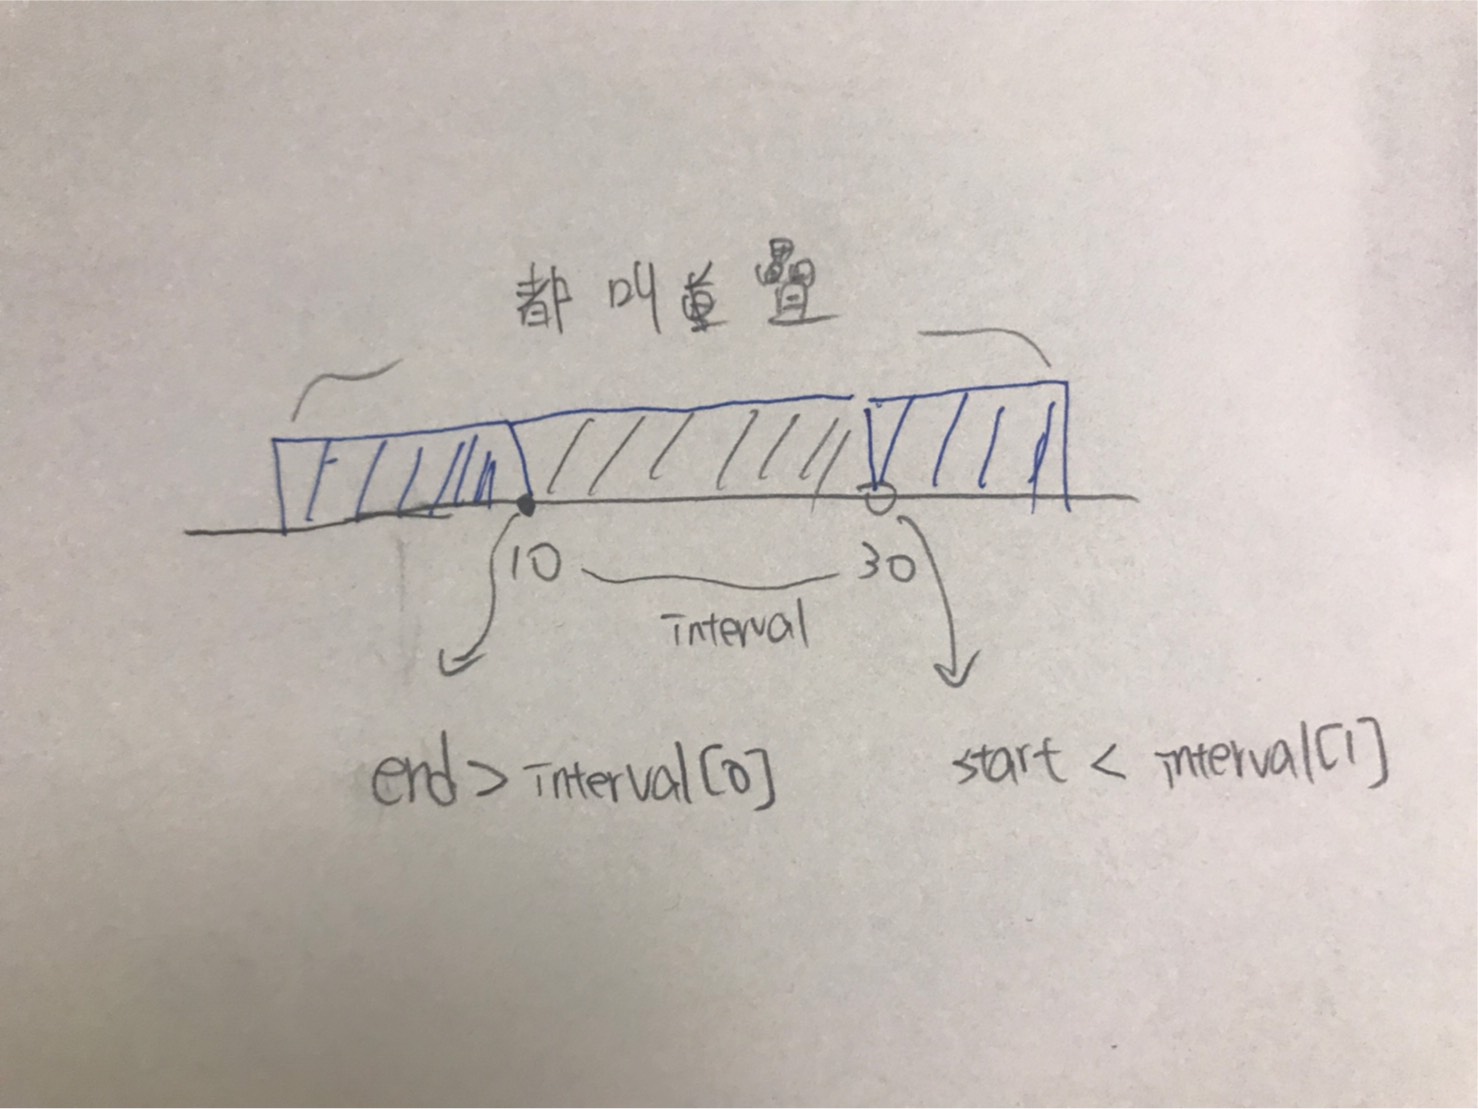 都叫重疊
10 30
interval
end > interval[0]
start < interval[1]